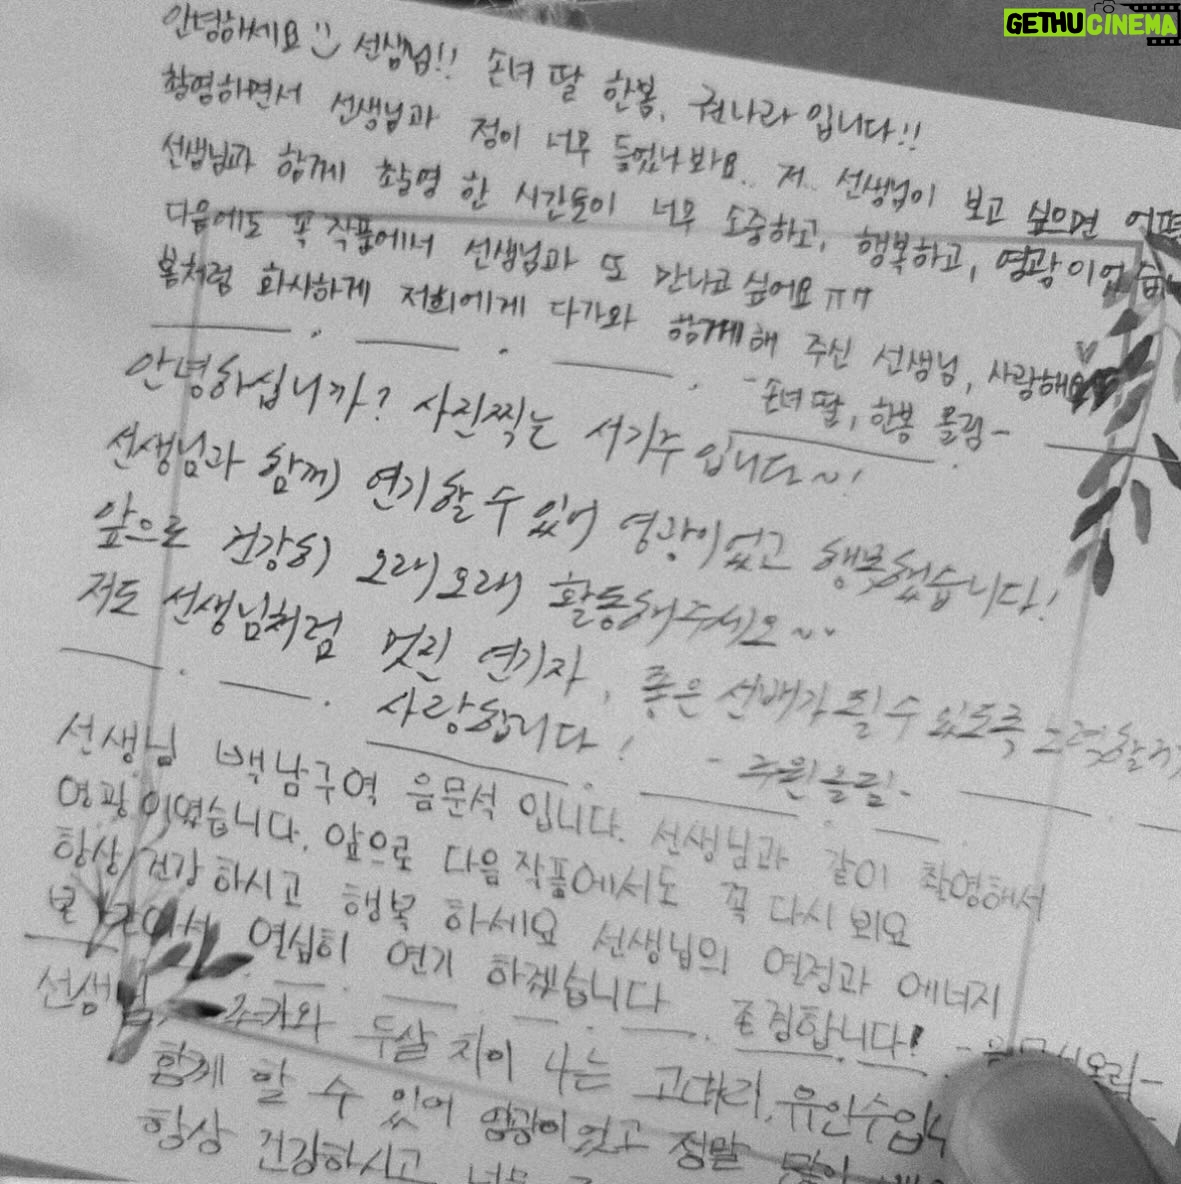 GETHUCINEMA
안녕하세요 선생님!! 손녀 딸 한봄, 권나라 입니다!!
촬영하면서 선생님과 정이 너무 들었나봐요.. 저.. 선생님이 보고 싶으면 어떡
선생님과 함께 촬영 한 시간들이 너무 소중하고, 행복하고, 영광이었습
다음에도 꼭 작품에서 선생님과 또 만나고 싶어요 ㅠㅠ
봄처럼 화사하게 저희에게 다가와 함께해 주신 선생님, 사랑해요
-손녀 딸, 한봄 올림-
안녕하십니까? 사진찍는 서기주입니다~!
선생님과 함께 연기할 수 있어 영광이었고 행복했습니다!
앞으로 건강히 오래오래 활동해주세요~
저도 선생님처럼 멋진 연기자, 좋은 선배가 될 수 있도록 노력할게
사랑합니다! - 주원올림-
선생님 백남구역 음문석 입니다. 선생님과 같이 촬영해서
영광이였습니다. 앞으로 다음 작품에서도 꼭 다시 뵈요
항상 건강 하시고 행복 하세요 선생님의 열정과 에너지
열심히 연기 하겠습니다 존경합니다!
선생님, 조카와 두살 차이 나는 고대리, 유인수입
함께 할 수 있어 영광이었고 정말 많이
항상 건강하시고